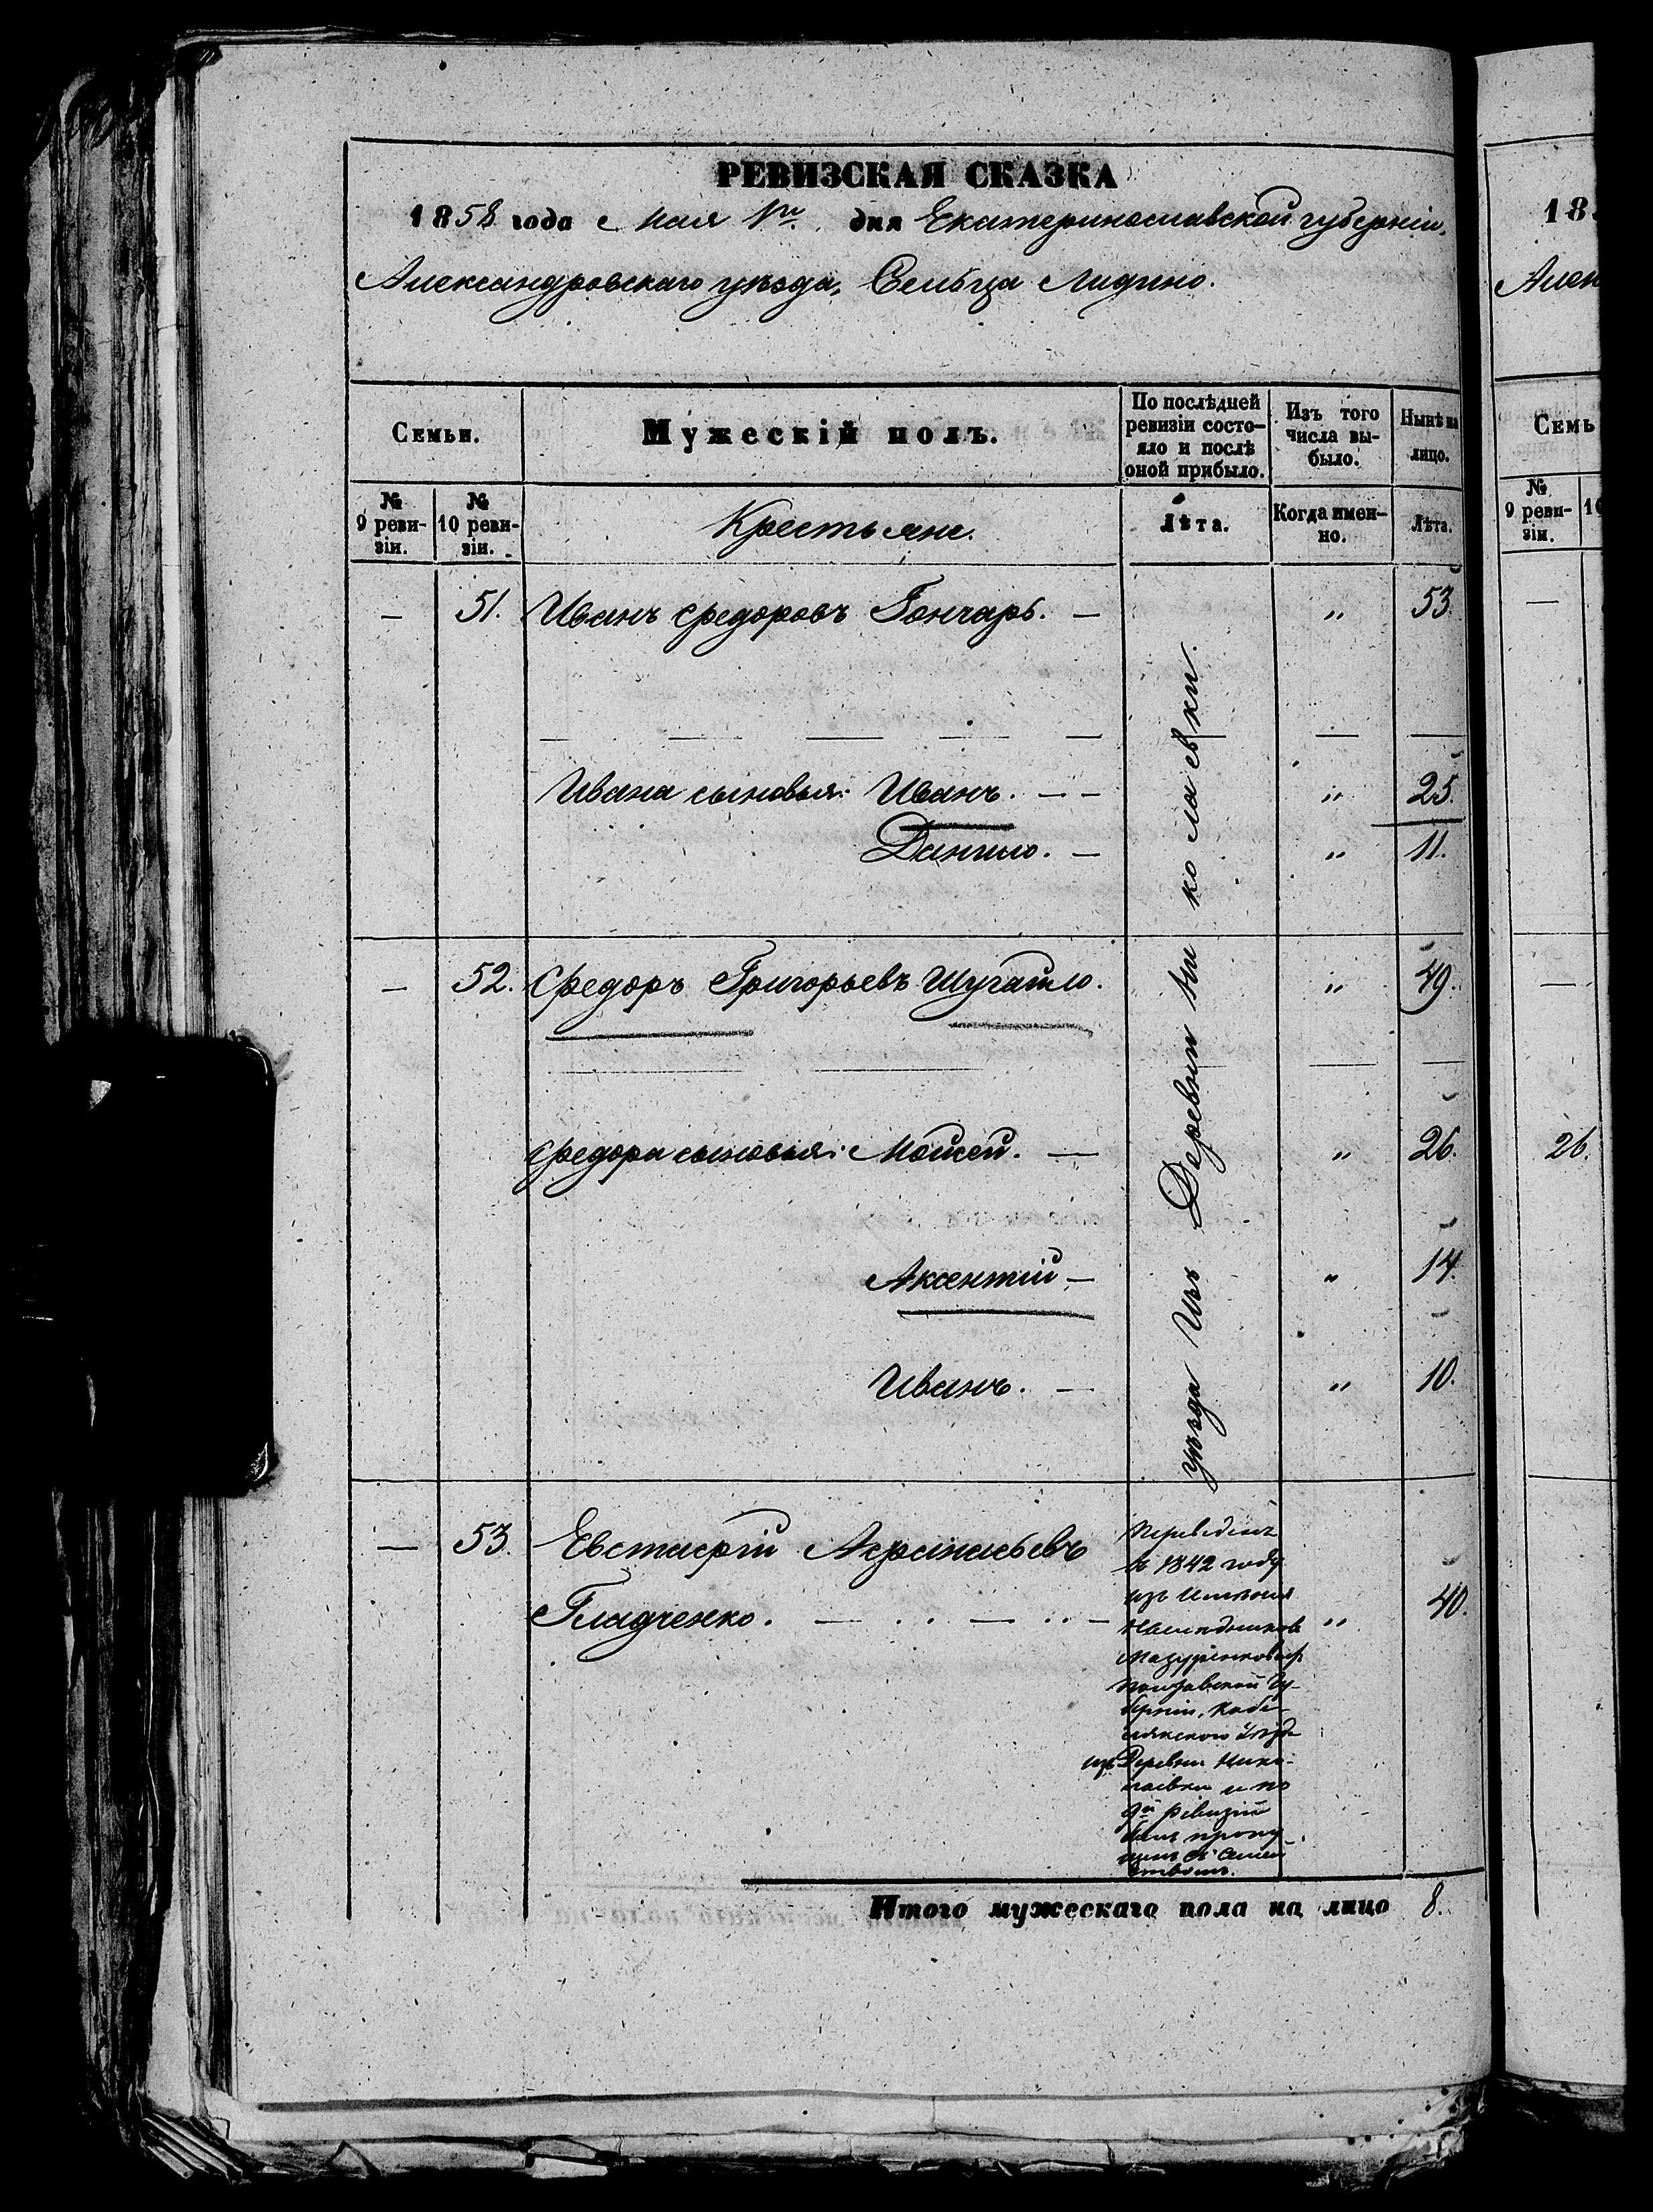 РЕВИЗСКАЯ СКАЗКА
1858 года Мая 1го дня Екатеринославской губерніи,
Александровскаго уѣзда, Сельца Лидино.
Семьи.
Мужескій полъ.
По послѣдней ревизіи состо-
яло и послѣ
оной прибыло.
Изъ того
числа вы-
было.
Нынѣ на
лицо.
№
9 реви-
зіи.
№
10 реви-
зіи.
Крестьяне.
Лѣта.
Когда имен-
но.
Лѣта.
— 51. Иванъ Федоровъ Гончарь. — „ 53.
Ивана сыновья: Иванъ. — — „ 25.
Данило. — „ 11.
— 52. Федоръ Григорьевъ Шугайло. „ 49.
Федора сыновья: Моисей. — „ 26.
Аксентій — „ 14.
Иванъ. — „ 10.
уѣзда Изъ Деревни Николаевки.
— 53. Евстафій Афанасьевъ
Гладченко. „ 40.
Переведенъ
въ 1842 году
изъ имѣнія
Наслѣдниковъ
Полтавской Гу-
берніи, Кобе-
лякского Уѣзда
изъ Деревни Нико-
лаевки и по
9й Ревизіи
былъ пропу-
щенъ съ семей
ствомъ.
Итого мужескаго пола на лицо 8.
18
Алек
Семь
№
9 реви-
зіи.
—
—
26.